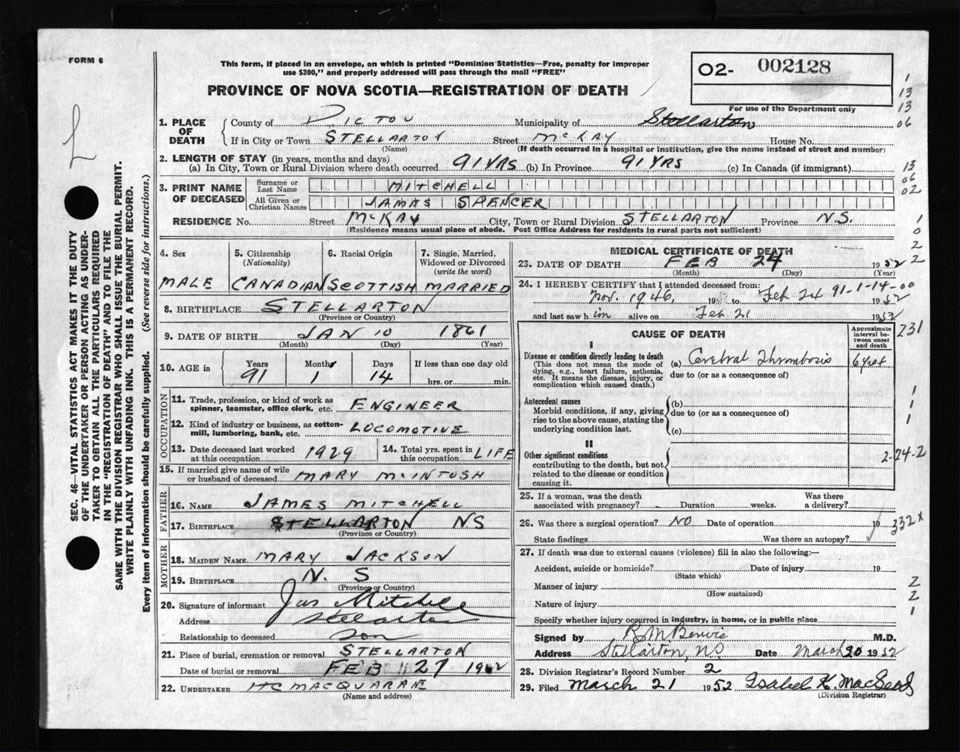 FORM 6
This form, if placed in an envelope, on which is printed "Dominion Statistics—Free, penalty for improper
use $300," and properly addressed will pass through the mail "FREE"
PROVINCE OF NOVA SCOTIA—REGISTRATION OF DEATH
O2- 002128
For use of the Department only
1
13
13
06
L
SEC. 46—VITAL STATISTICS ACT MAKES IT THE DUTY
OF THE UNDERTAKER OR PERSON ACTING AS UNDER-
TAKER TO OBTAIN ALL THE PARTICULARS REQUIRED
IN THE "REGISTRATION OF DEATH" AND TO FILE THE
SAME WITH THE DIVISION REGISTRAR WHO SHALL ISSUE THE BURIAL PERMIT.
WRITE PLAINLY WITH UNFADING INK. THIS IS A PERMANENT RECORD.
Every item of information should be carefully supplied. (See reverse side for instructions.)
1. PLACE OF DEATH
County of PICTOU Municipality of Stellarton
If in City or Town STELLARTON Street McKAY House No.
(Name) (If death occurred in a hospital or institution, give the name instead of street and number)
2. LENGTH OF STAY (in years, months and days)
(a) In City, Town or Rural Division where death occurred 91 YRS (b) In Province 91 YRS (c) In Canada (if immigrant)
13
06
02
3. PRINT NAME OF DECEASED
Surname or Last Name MITCHELL
All Given or Christian Names JAMES SPENCER
RESIDENCE No. Street McKAY City, Town or Rural Division STELLARTON Province N.S.
(Residence means usual place of abode. Post Office Address for residents in rural parts not sufficient)
1
0
2
2
4. Sex
MALE
5. Citizenship (Nationality)
CANADIAN
6. Racial Origin
SCOTTISH
7. Single, Married, Widowed or Divorced (write the word)
MARRIED
8. BIRTHPLACE STELLARTON
(Province or Country)
9. DATE OF BIRTH JAN 10 1861
(Month) (Day) (Year)
10. AGE in Years Months Days If less than one day old
91 1 14 hrs. or min.
OCCUPATION
11. Trade, profession or kind of work as
spinner, teamster, office clerk, etc. ENGINEER
12. Kind of industry or business, as cotton-
mill, lumbering, bank, etc. LOCOMOTIVE
13. Date deceased last worked
at this occupation 1929
14. Total yrs. spent in
this occupation LIFE
15. If married give name of wife
or husband of deceased MARY McINTOSH
FATHER
16. NAME JAMES MITCHELL
17. BIRTHPLACE STELLARTON NS
(Province or Country)
MOTHER
18. MAIDEN NAME MARY JACKSON
19. BIRTHPLACE N. S
(Province or Country)
20. Signature of informant Jas Mitchell
Address Stellarton
Relationship to deceased Son
21. Place of burial, cremation or removal STELLARTON
Date of burial or removal FEB 27 1952
22. UNDERTAKER HC MACQUARRIE
(Name and address)
MEDICAL CERTIFICATE OF DEATH
23. DATE OF DEATH FEB 24 1952
(Month) (Day) (Year)
24. I HEREBY CERTIFY that I attended deceased from:
91-1-14-00
Nov. 1946, 19 to Feb 24 1952
and last saw him alive on Feb 21 1952
CAUSE OF DEATH
Approximate interval between onset and death
231
I
Disease or condition directly leading to death
(This does not mean the mode of
dying, e.g., heart failure, asthenia,
etc. It means the disease, injury, or
complication which caused death.)
(a) Cerebral Thrombosis
due to (or as a consequence of)
Antecedent causes
Morbid conditions, if any, giving
rise to the above cause, stating the
underlying condition last.
(b)
due to (or as a consequence of)
(c)
1
1
1
II
Other significant conditions
contributing to the death, but not
related to the disease or condition
causing it.
2-24-2
25. If a woman, was the death
associated with pregnancy? Duration weeks. Was there a delivery?
26. Was there a surgical operation? NO Date of operation 19
332X
State findings Was there an autopsy?
27. If death was due to external causes (violence) fill in also the following:—
Accident, suicide or homicide? Date of injury 19
(State which)
Manner of injury
(How sustained)
Nature of injury
2
2
1
Specify whether injury occurred in industry, in home, or in public place
Signed by M.D.
Address Stellarton, N.S. Date March 20 1952
28. Division Registrar's Record Number 2
29. Filed March 21 1952 Isabel K. MacLeod
(Division Registrar)